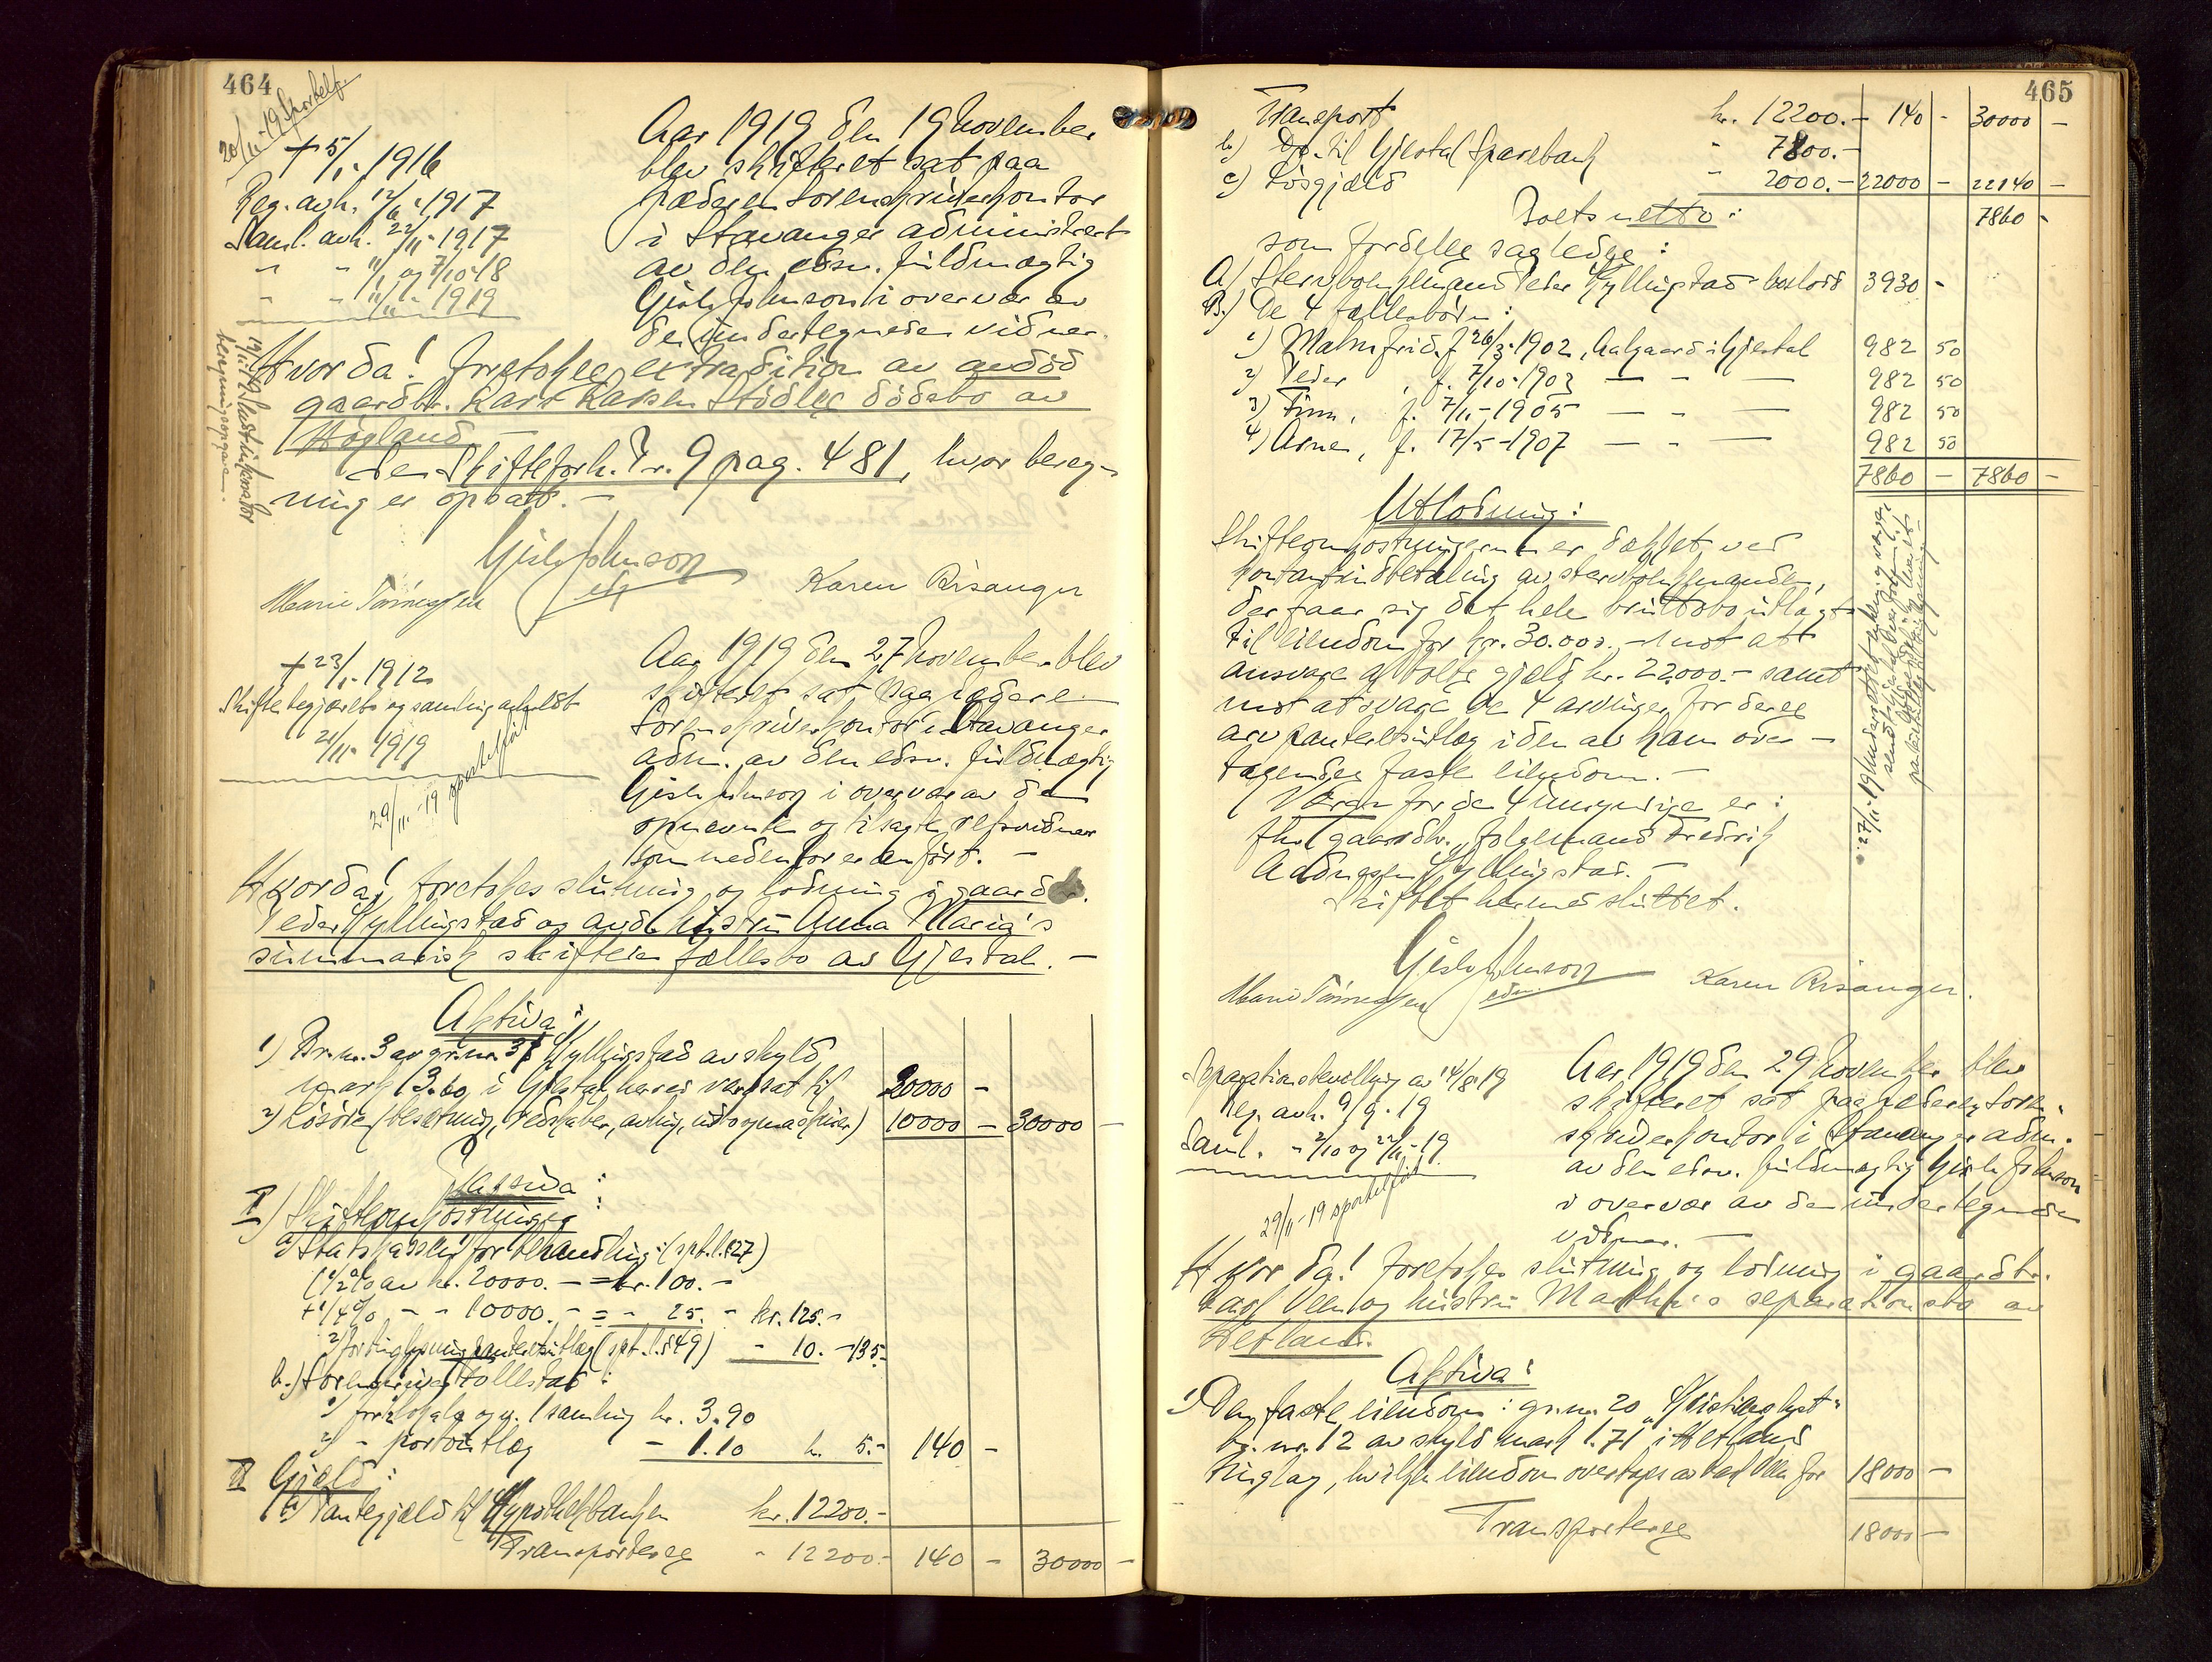 464
20/11-19 Sportelf.
+ 5/1-1916
Reg. avh. 12/6-1917
Saml. avh. 22/11-1917
" - " 11/1 og 7/10-18
" - " 11/11-1919
Aar 1919 den 19 November
blev skifteret sat paa
Jæderen sorenskriverkontor
i Stavanger administrert
av den edsv. fuldmægtig
Gisle Johnson i overvær av
de undertegnede vidner.
Hvorda! foretokes extradition av avdød
gaardbr. Karsten Stødles dødsbo av
Høgland
Se Skifteforh. Pr. 9 pag. 481, hvor bereg-
ning er opsatt. -
Gisle Johnson
efg
Marie Tønnessen
Karen Risanger
+ 23/1-1912
Skiftebegjærelse og samling avholdt
21/11-1919
29/11-19 sportelført
Aar 1919 den 27 November blev
skifteret sat paa Jæderen
sorenskriverkontor i Stavanger
adm. av den edsv. fuldmægtig
Gisle Johnson i overvær av de
opnævnte og tilsagte retsvidner
som nedenfor er anført. -
Hvorda! foretokes slutning og lodning i gaardbr.
Peder Kyllingstad og avd. hustru Anna Maria's
summarisk skiftede fællesbo av Gjestal. -
Aktiva:
1) Br.nr. 3 av gr.nr. 37 Kyllingstad av skyld
mark 3.60 i Gjestal herred værdsat til 20000 -
2) Løsøre (besætning, redskaber, avling, indbo og maskiner) 10000 - 30000 -
Passiva:
I) Skifteomkostninger:
a) Statskassen for behandling: (spt.l.§27)
1/2% av kr. 20000. - = kr. 100. -
+ 1/4% - - 10000. - = - 25. - kr. 125. -
2) for tinglysning panteretsutlæg (spt.l.§49) - 10. - 135 -
b.) Sorenskriver Tollestad:
2) - portoutlæg - 1.10 kr. 5.- 140 -
II Gjæld:
a) Pantegjæld til Hypothekbanken kr. 12200.-
Transporteres " 12200.- 140 - 30000 -
465
Transport kr. 12200.- 140 - 30000 -
b) Do. til Gjestal Sparebank " 7800.-
c) Løsgjæld " 2000.- 22000 - 22140 -
Boets netto: 7860 -
som fordeles saaledes:
A) Stervboenkemand Peder Kyllingstad boslod 3930 -
B.) De 4 fællesbørn:
1) Malmfrid f. 26/3-1902, Aalgaard i Gjestal 982 50
2) Peder, f. 7/10-1903 — - — 982 50
3) Finn, f. 7/11-1905 — - — 982 50
4) Arne, f. 17/5-1907 — - — 982 50
7860 - 7860 -
Utlodning:
Skifteomkostningerne er dækket ved
kontant indbetaling av stervboenkemanden,
der faar sig det hele bruttobo utlagt
til eiendom for kr. 30.000.- mot at
ansvare boets gjæld kr. 22000.- samt
mot at svare de 4 arvinger for deres
arv panteretsutlæg i den av ham over-
tagendes faste eiendom. -
Værge for de 4 umyndige er:
fhv. gaardbr., følgemand Fredrik
Aadnesen Kyllingstad. -
Skiftet hermed sluttet.
Gisle Johnson
edsv.
Marie Tønnessen
Karen Risanger.
Separationsbevilling av 14/8-19
Reg. avh. 9/9-19
Saml. - 2/10 og 22/11-19
29/11-19 sportelført
Aar 1919 den 29 November blev
skifteret sat paa Jæderen soren-
skriverkontor i Stavanger adm.
av den edsv. fuldmægtig Gisle Johnson
i overvær av de undertegnede
vidner. -
Hvorda! foretokes slutning og lodning i gaardbr.
og hustru Martha's separationsbo av
Hetland.
Aktiva:
1) Den faste eiendom: gr.nr. 20 "Kristianslyst"
br.nr. 12 av skyld mark 1.71 i Hetland
tinglag, hvilken eiendom overtages av for 18000 -
Transporteres 18000 -